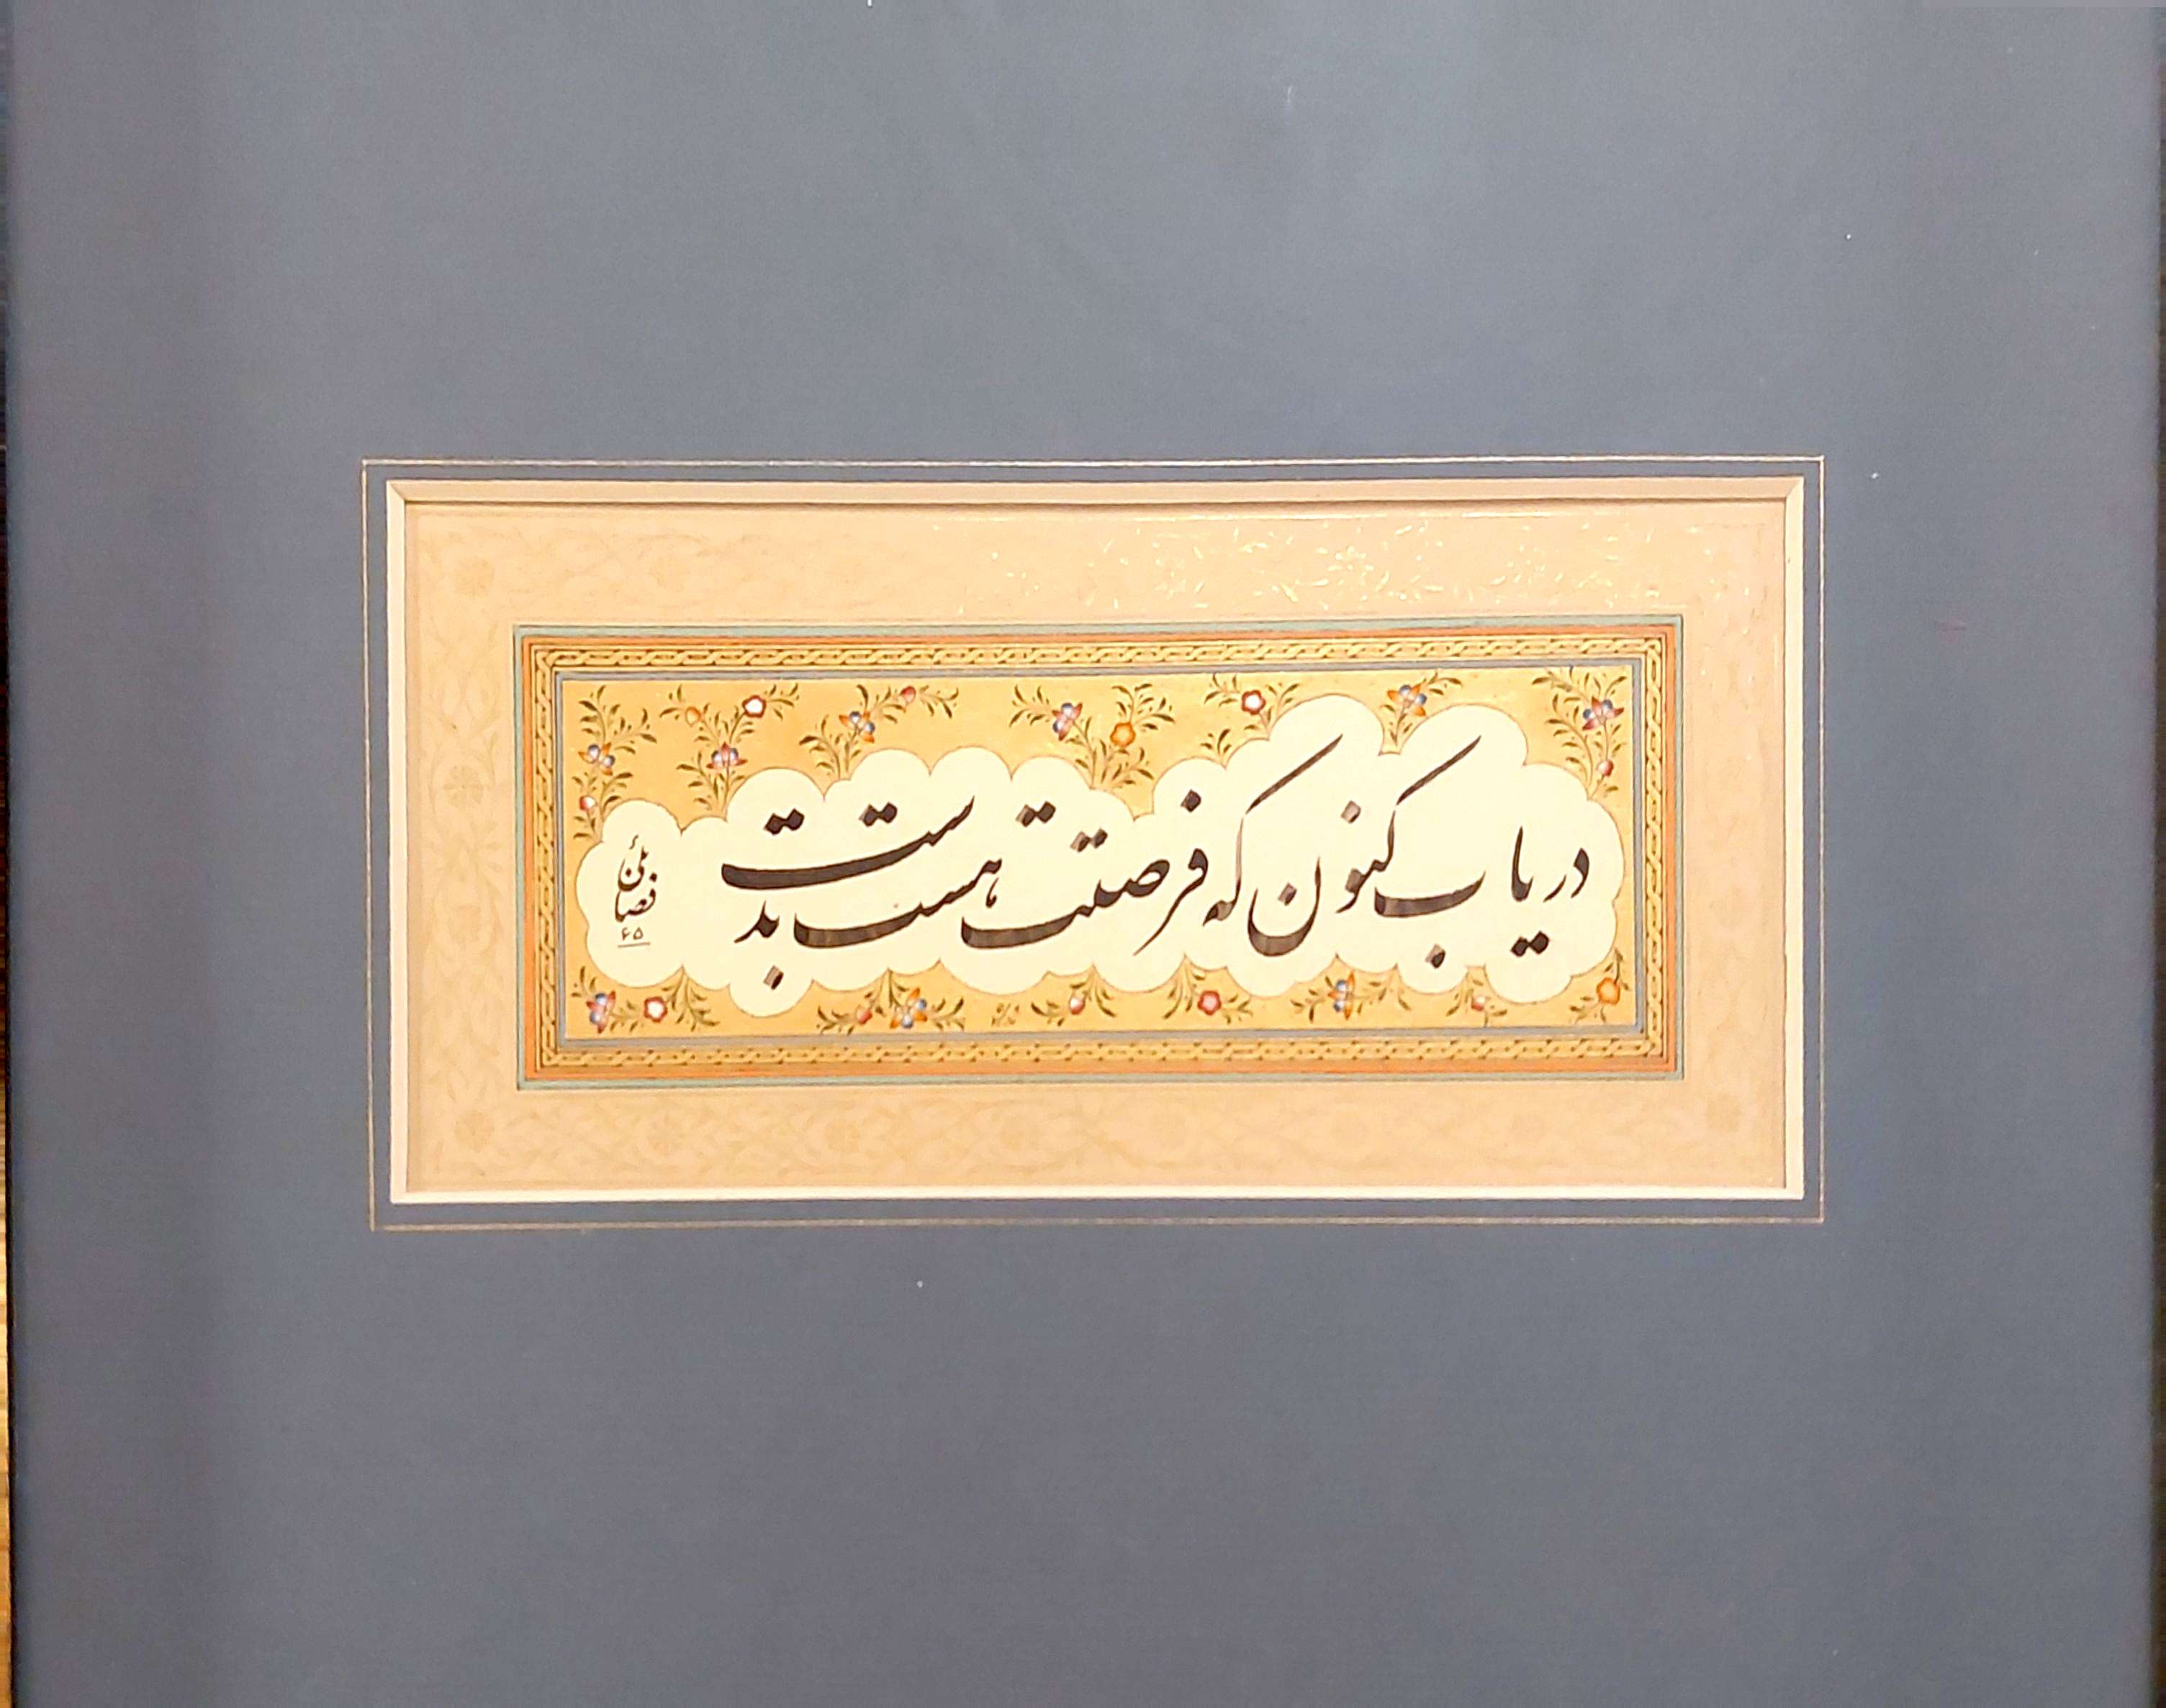 دریاب کنون که فرصتت هست بدست
فضائلی
۶۵